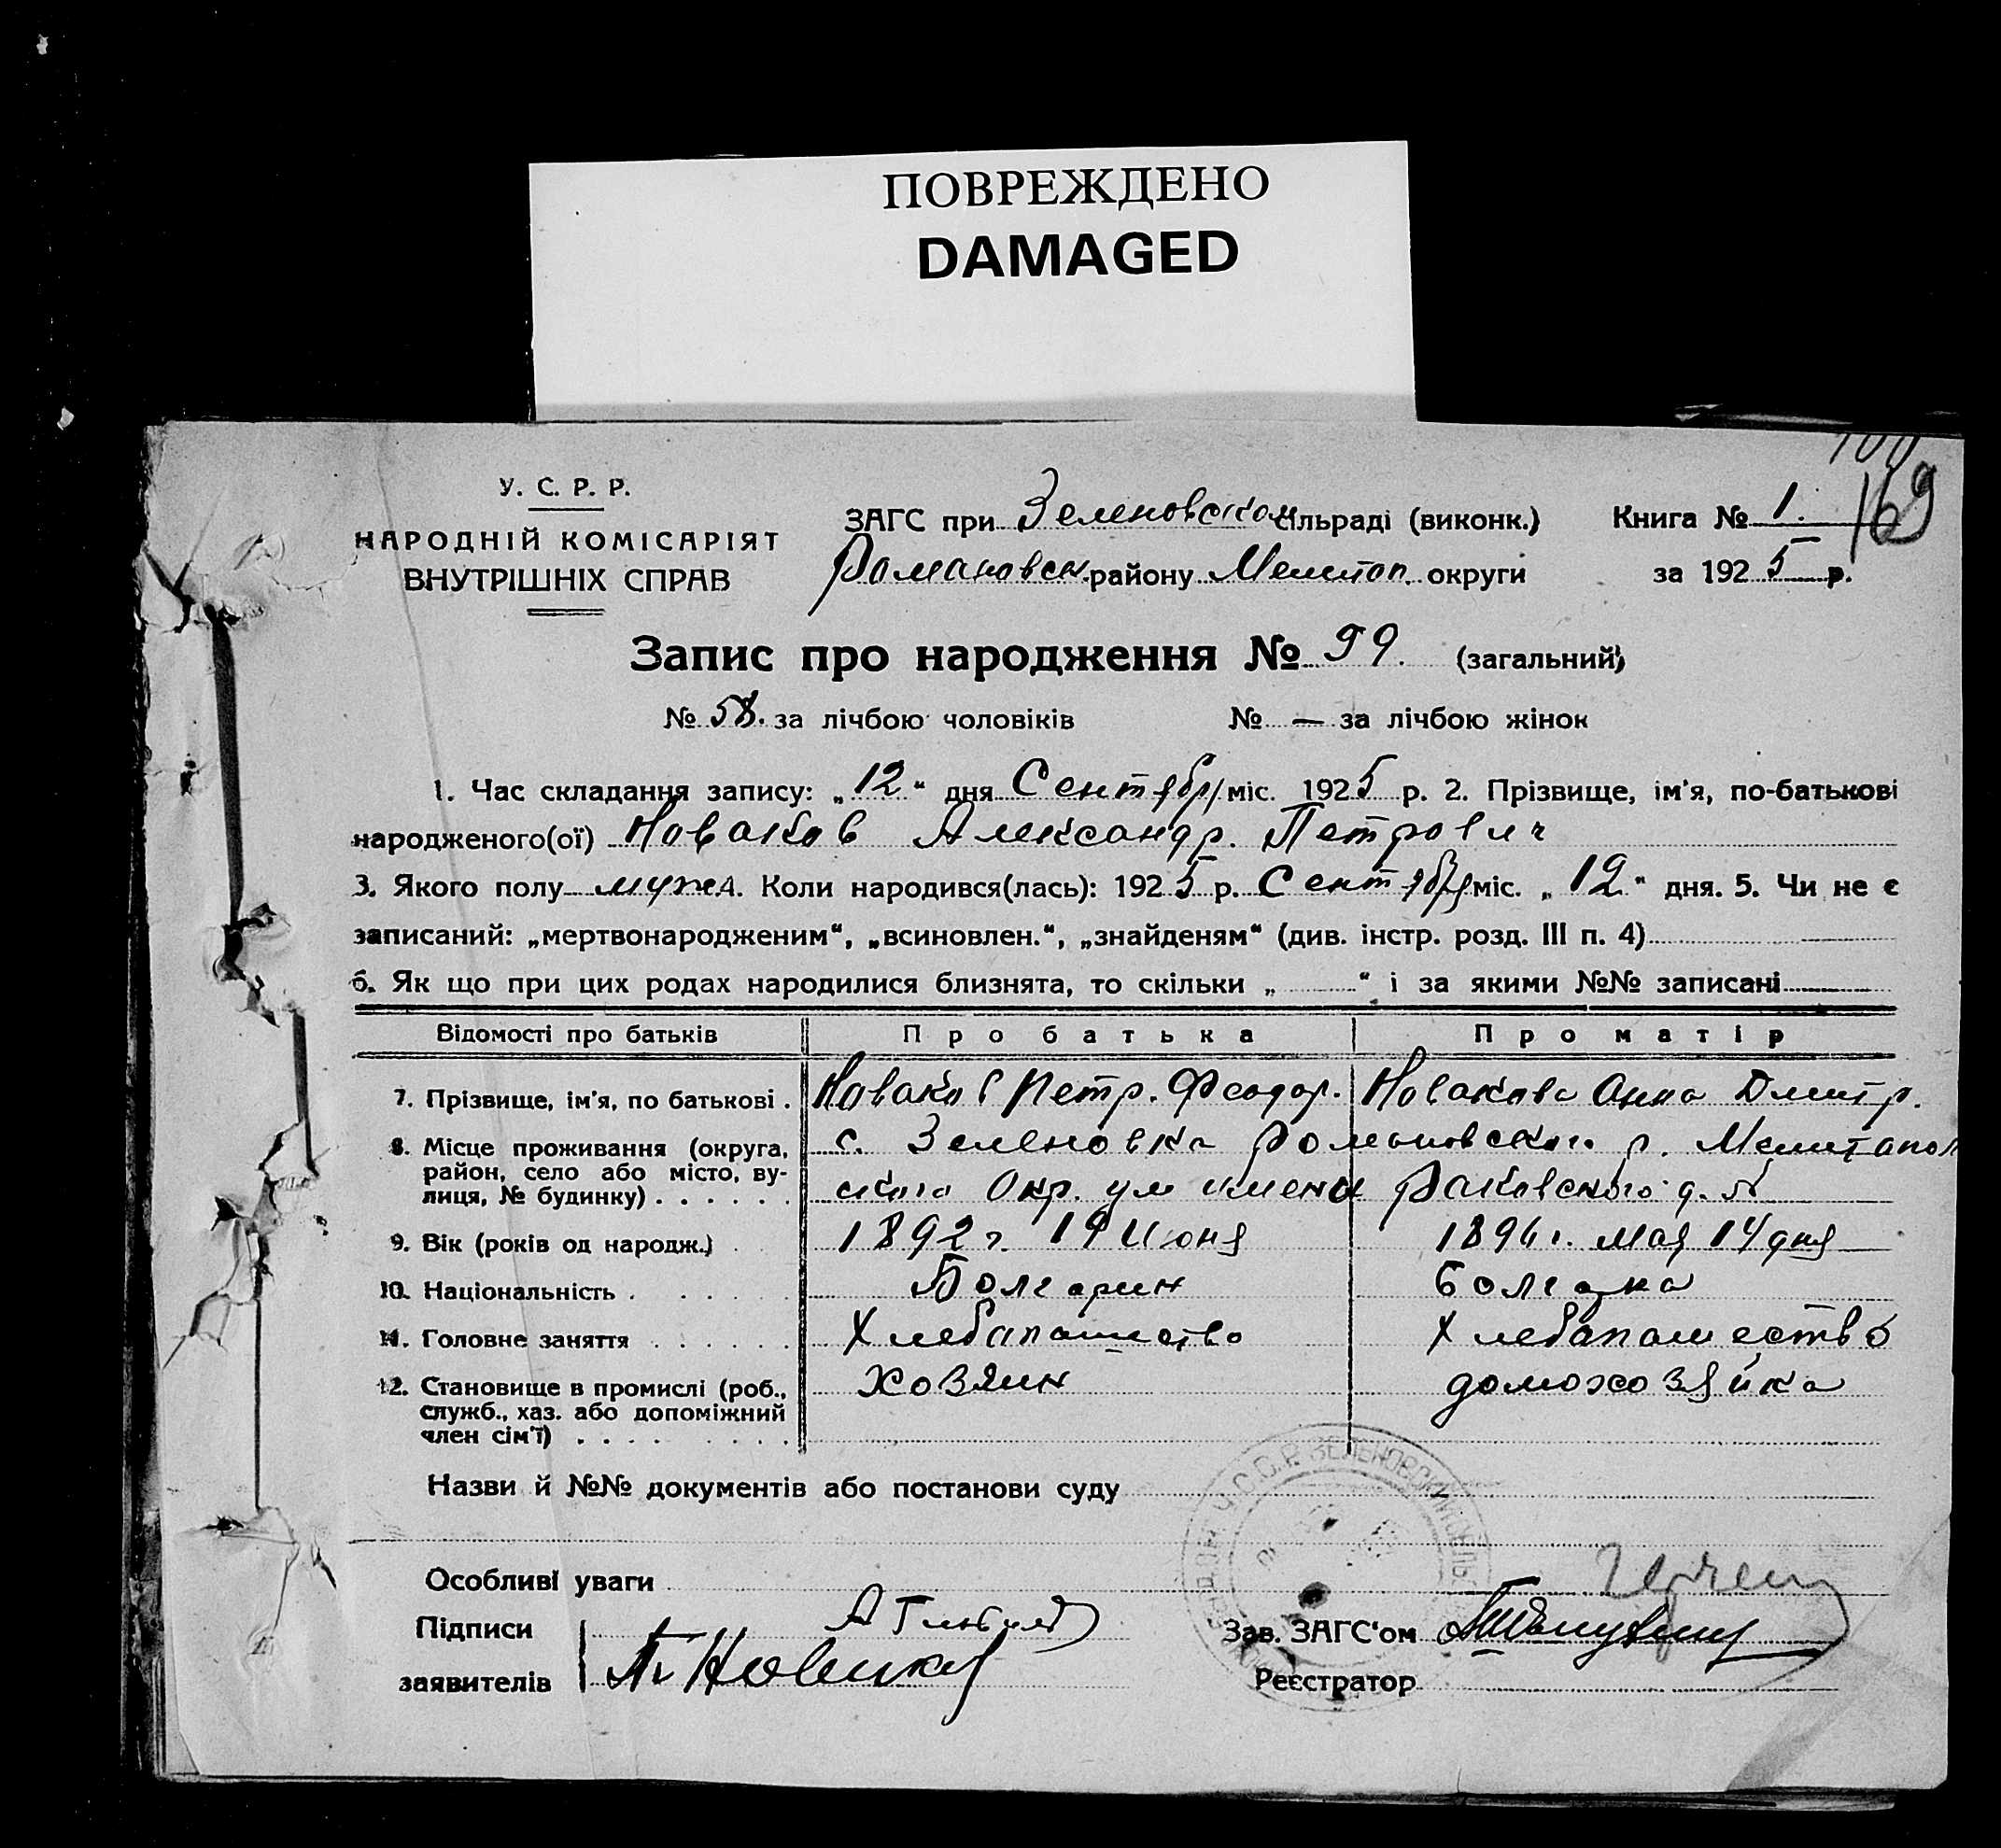 ПОВРЕЖДЕНО
DAMAGED
169
У. С. Р. Р.
НАРОДНІЙ КОМІСАРІЯТ
ВНУТРІШНІХ СПРАВ
ЗАГС при Зеленовском сільраді (виконк.) Книга № 1.
Романовск. району Мелитоп. округи за 1925 р.
Запис про народження № 99. (загальний)
№ 58. за лічбою чоловіків № — за лічбою жінок
1. Час складання запису: „12“ дня Сентября міс. 1925 р. 2. Прізвище, ім'я, по-батькові
народженого(ої) Новаков Александр. Петрович
3. Якого полу муж 4. Коли народився(лась): 1925 р. Сентября міс. „12“ дня. 5. Чи не є
записаний: „мертвонародженим“, „всиновлен.“, „знайденям“ (див. інстр. розд. III п. 4)
6. Як що при цих родах народилися близнята, то скільки „ “ і за якими №№ записані
Відомості про батьків Про батька Про матір
7. Прізвище, ім'я, по батькові . Новаков Петр. Феодор. Новакова Анна Дмитр.
8. Місце проживання (округа, район, село або місто, вулиця, № будинку) . . . . . . с. Зеленовка Романовского р. Мелитопол
ского Окр. ул имени Раковского д. №
9. Вік (років од народж.) . 1892 г. 19 Июня 1896 г. мая 14 дня
10. Національність . . . . . Болгарин болгарка
11. Головне заняття . . . . . . Хлебапашество Хлебапашество
12. Становище в промислі (роб., служб., хаз. або допоміжний член сім'ї) . . . . . . . . хозяин домохозяйка
Назви й №№ документів або постанови суду
Особливі уваги
Підписи
заявителів П. Новаков
Зав. ЗАГС'ом
Реєстратор